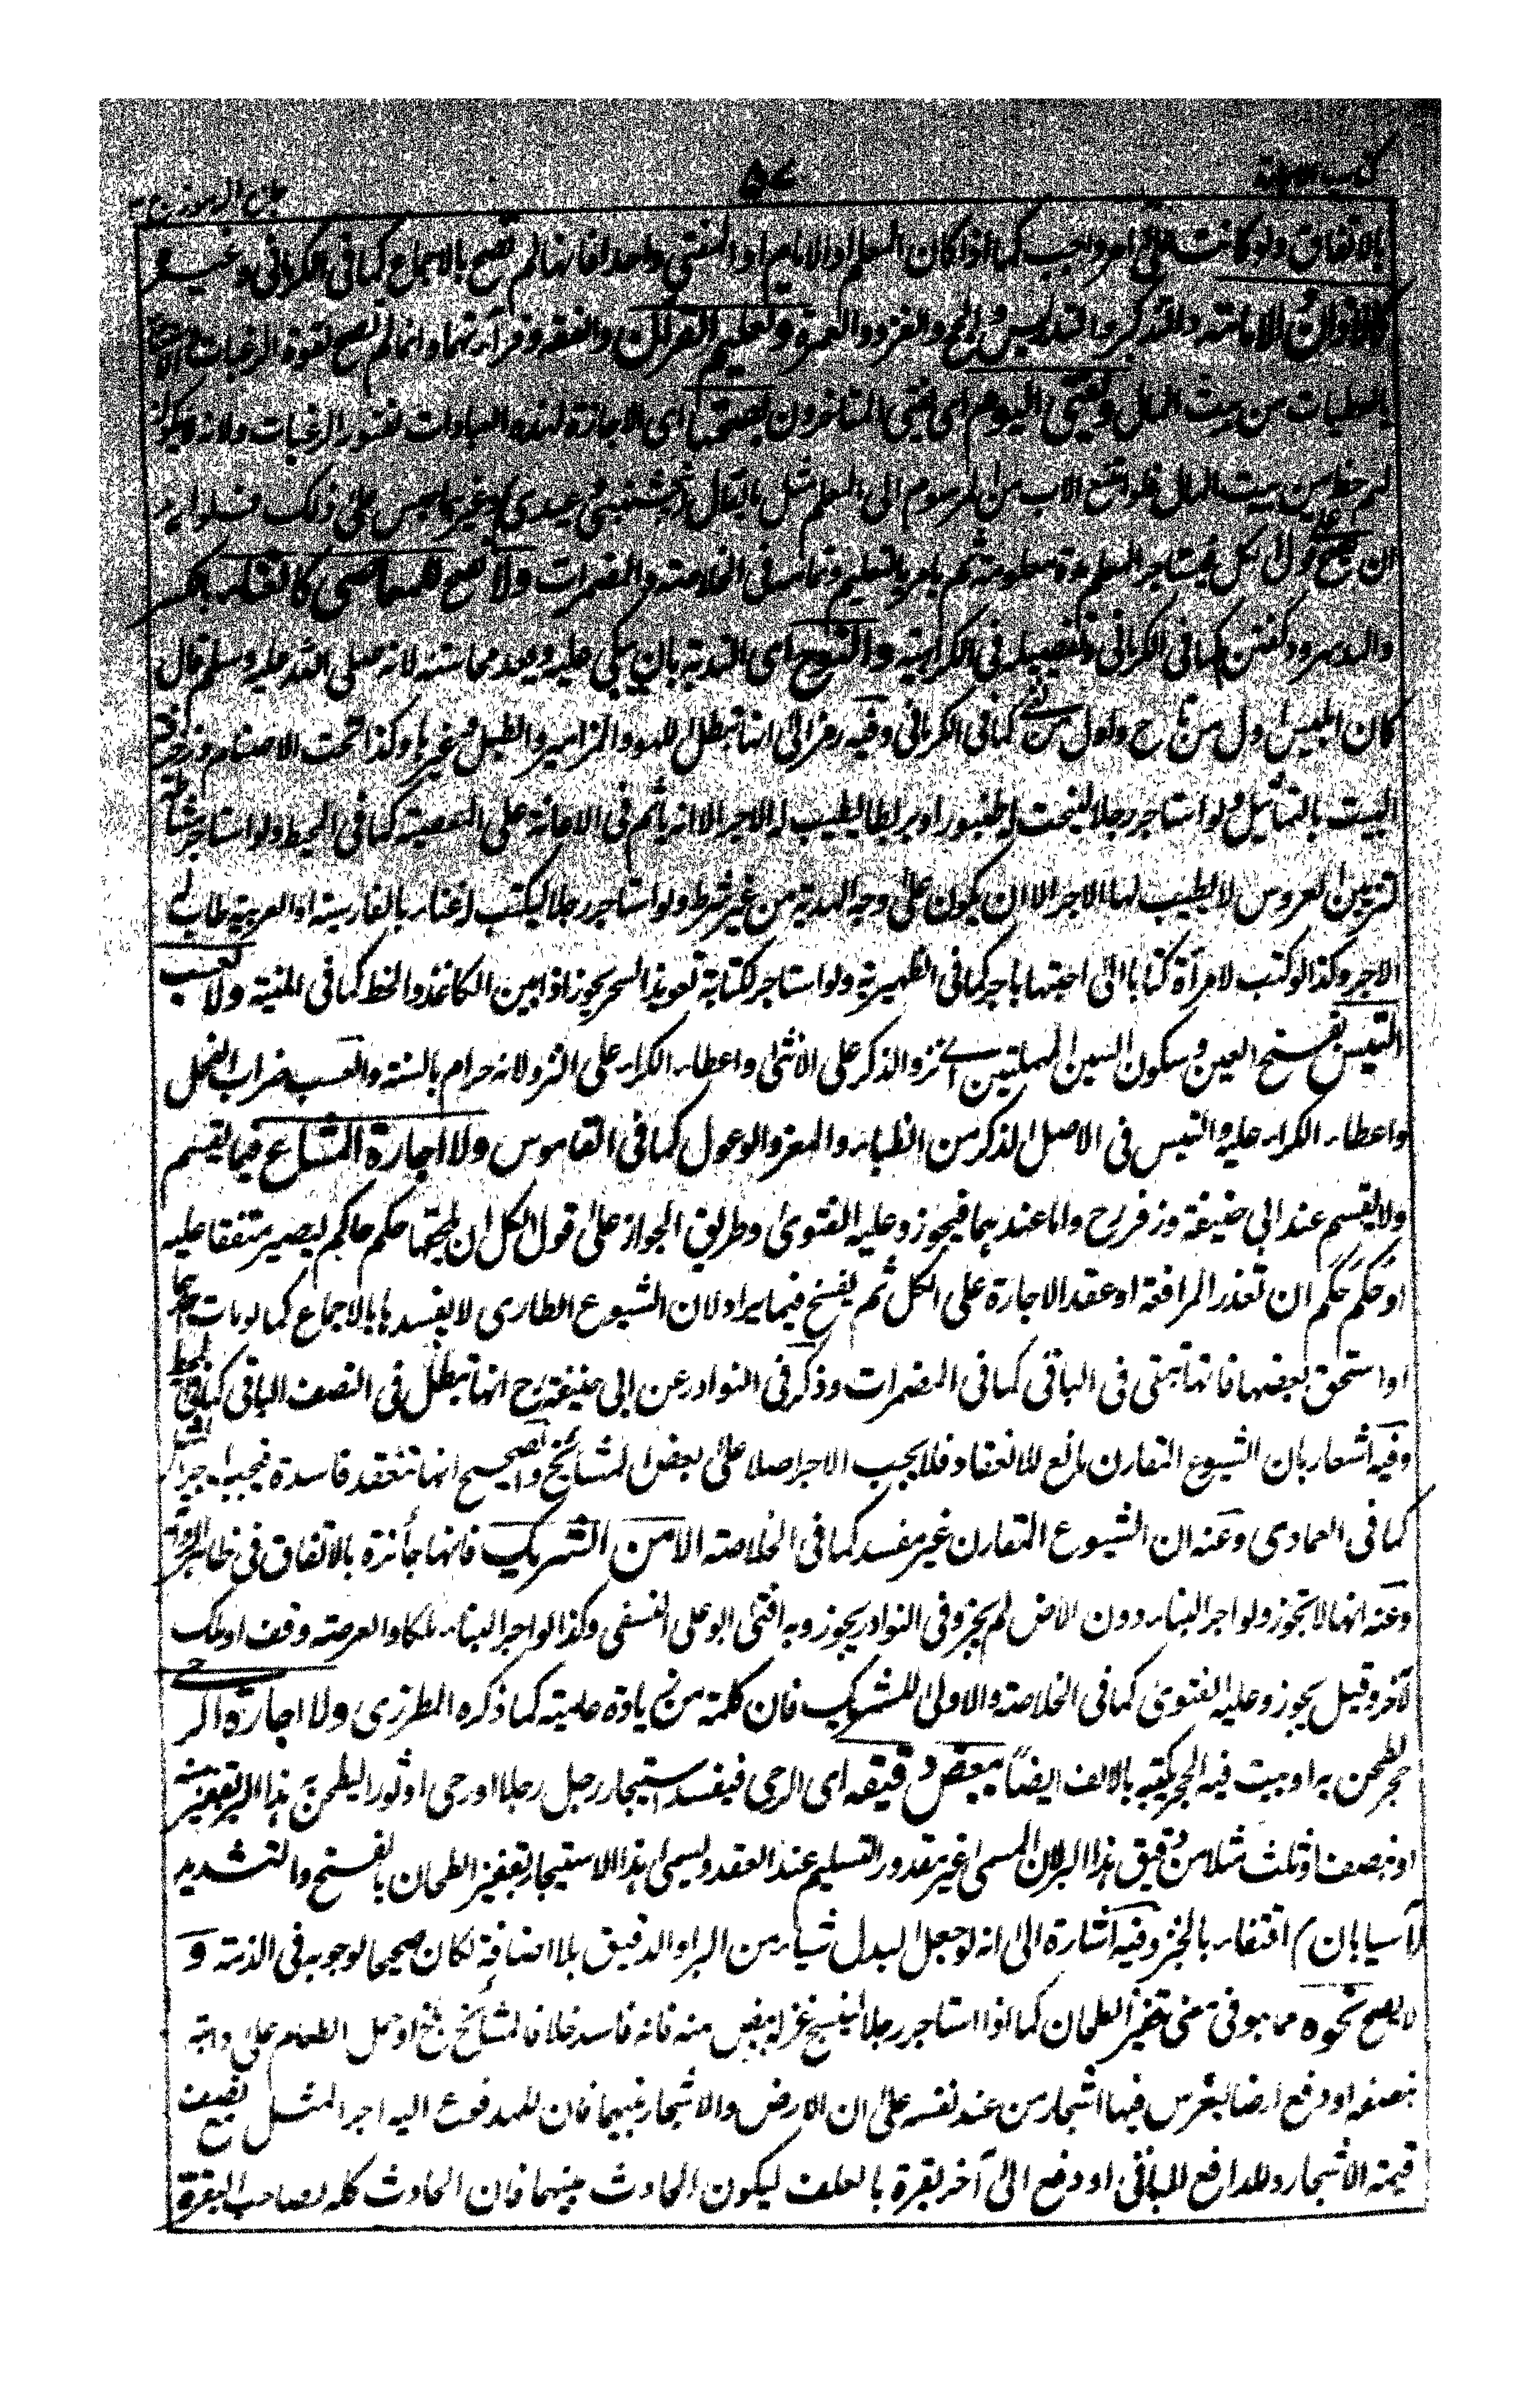 ٥٧
بالاتفاق ولو كانت على امر واجب كما اذا كان المعلم او الامام او المفتى واحدا فانها لم تصح بالاجماع كما فى الكرمانى وغيره
كالاذان والامامة والتذكير والتدريس والحج والغزو والعمرة وتعليم القرآن والفقه وقرآءتهما وانما لم تصح لقوة الرغبات
بالعطيات من بيت المال ويفتى اليوم اى يفتى المتاخرون بصحتها اى الاجازة لهذه العبادات لفتور الرغبات ولانه لا يكون
لهم حظ من بيت المال فلو امتنع الاب من المرسوم الى المعلم مثل ما يقال وعيدى وغيرهما يحبس على ذلك
ان يصح قول الكل يستاجر المعلم مدة معلومة ثم يامره بالتعليم وتمامه فى الخلاصة والمضمرات ولا تصح للمعاصى كالغناء بالكسر
والمد سرود كفتن كما فى الكرمانى وتفصيله فى الكراهية والنوح اى الندبة بان يبكى عليه ويعد محاسنه لانه صلى الله عليه وسلم قال
كان ابليس اول من ناح واول من كما فى الكرمانى وفيه رمز الى انها تبطل للهو والمزامير والطبل وغيرها وكذا نحت الاصنام وزخرفة
البيت بالتماثيل ولو استاجر رجلا لينحت له طنبورا او بربطا يطيب له الاجر الا انه ياثم فى الاعانة على المعصية كما فى المحيط ولو استاجر مشاطة
لتزيين العروس لا يطيب لها الاجر الا ان يكون على وجه الهدية من غير شرط ولو استاجر رجلا ليكتب له غناء بالفارسية او العربية طاب له
الاجر وكذا لو كتب لامرأة كتابا الى احبتها باجر كما فى الظهيرية ولو استاجر لكتابة تعويذ السحر يجوز اذا بين الكاغذ والخط كما فى المنية ولا عسب
التيس بفتح العين وسكون السين المهملتين اى نزو الذكر على الانثى واعطاء الكراء على النزو لانه حرام بالسنة والعسب ضراب الفحل
واعطاء الكراء عليه والتيس فى الاصل الذكر من الظباء والمعز والوعول كما فى القاموس ولا اجارة المشاع فيما يقسم
ولا يقسم عند ابى حنيفة وزفر رح واما عندهما فيجوز وعليه الفتوى وطريق الجواز على قول الكل ان يلحقها حكم حاكم ليصير متفقا عليه
او حكم حكم ان تعذر المرافعة او عقد الاجارة على الكل ثم يفسخ فيما يراد لان الشيوع الطارى لا يفسدها بالاجماع كما لو مات احدهما
او استحق بعضها فانها تبقى فى الباقى كما فى المضمرات وذكر فى النوادر عن ابى حنيفة رح انها تبطل فى النصف الباقى كما فى المحيط
وفيه اشعار بان الشيوع المقارن مانع للانعقاد فلا يجب الاجر اصلا على بعض المشائخ والصحيح انها تنعقد فاسدة فيجب اجر المثل
كما فى العمادى وعنه ان الشيوع المقارن غير مفسد كما فى الخلاصة الا من الشريك فانها جائزة بالاتفاق فى ظاهر الرواية
وعنه انها لا تجوز ولو اجر البناء دون الارض لم يجز وفى النوادر يجوز وبه افتى ابو على النسفى وكذا لو اجر البناء ملكا والعرصة وقف او ملك
لآخر وقيل يجوز وعليه الفتوى كما فى الخلاصة والاولى للشريك فان كلمة من زيادة عامية كما ذكره المطرزى ولا اجارة الرحى
حجر طحن به او بيت فيه الحجر يكتبه بالالف ايضا ببعض دقيقه اى الرحى فيفسد استيجار رجل رجلا او رحى او ثورا ليطحن به هذا البر بقفيز منه
او نصف او ثلث مثلا من دقيق هذا البر لان المسمى غير مقدور التسليم عند العقد ويسمى هذا الاستيجار بقفيز الطحان بالفتح والتشديد
لآسيابان اقتفاء بالخبر وفيه اشارة الى انه لو جعل البدل شيئا من البر او الدقيق بلا اضافة لكان صحيحا لوجوبه فى الذمة و
لا يصح نحوه مما هو فى معنى قفيز الطحان كما اذا استاجر رجلا لينسج غزله ببعض منه فانه فاسد خلافا لمشائخ بلخ او حمل الطعام على دابته
بنصفه او دفع ارضا ليغرس فيها اشجارا من عند نفسه على ان الارض والاشجار بينهما فان للمدفوع اليه اجر المثل بنصف
قيمة الاشجار وللدافع الباقى او دفع الى آخر بقرة بالعلف ليكون الحادث بينهما فان الحادث كله لصاحب البقرة